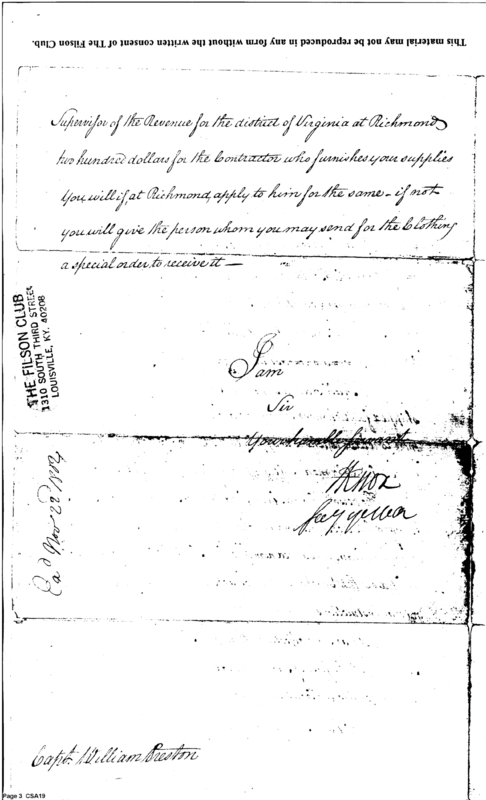 This material may not be reproduced in any form without the written consent of The Filson Club.
Supervisor of the Revenue for the district of Virginia at Richmond
two hundred dollars for the Contractor who furnishes your supplies
You will if, at Richmond, apply to him for the same - if not
you will give the person whom you may send for the Clothing
a special order, to receive it —
THE FILSON CLUB
1310 SOUTH THIRD STREET
LOUISVILLE, KY. 40208
I am
Sir
Your humble Servant
H Knox
Secy of War
Nov 22d
Capt. William Preston
Page 3 CSA19